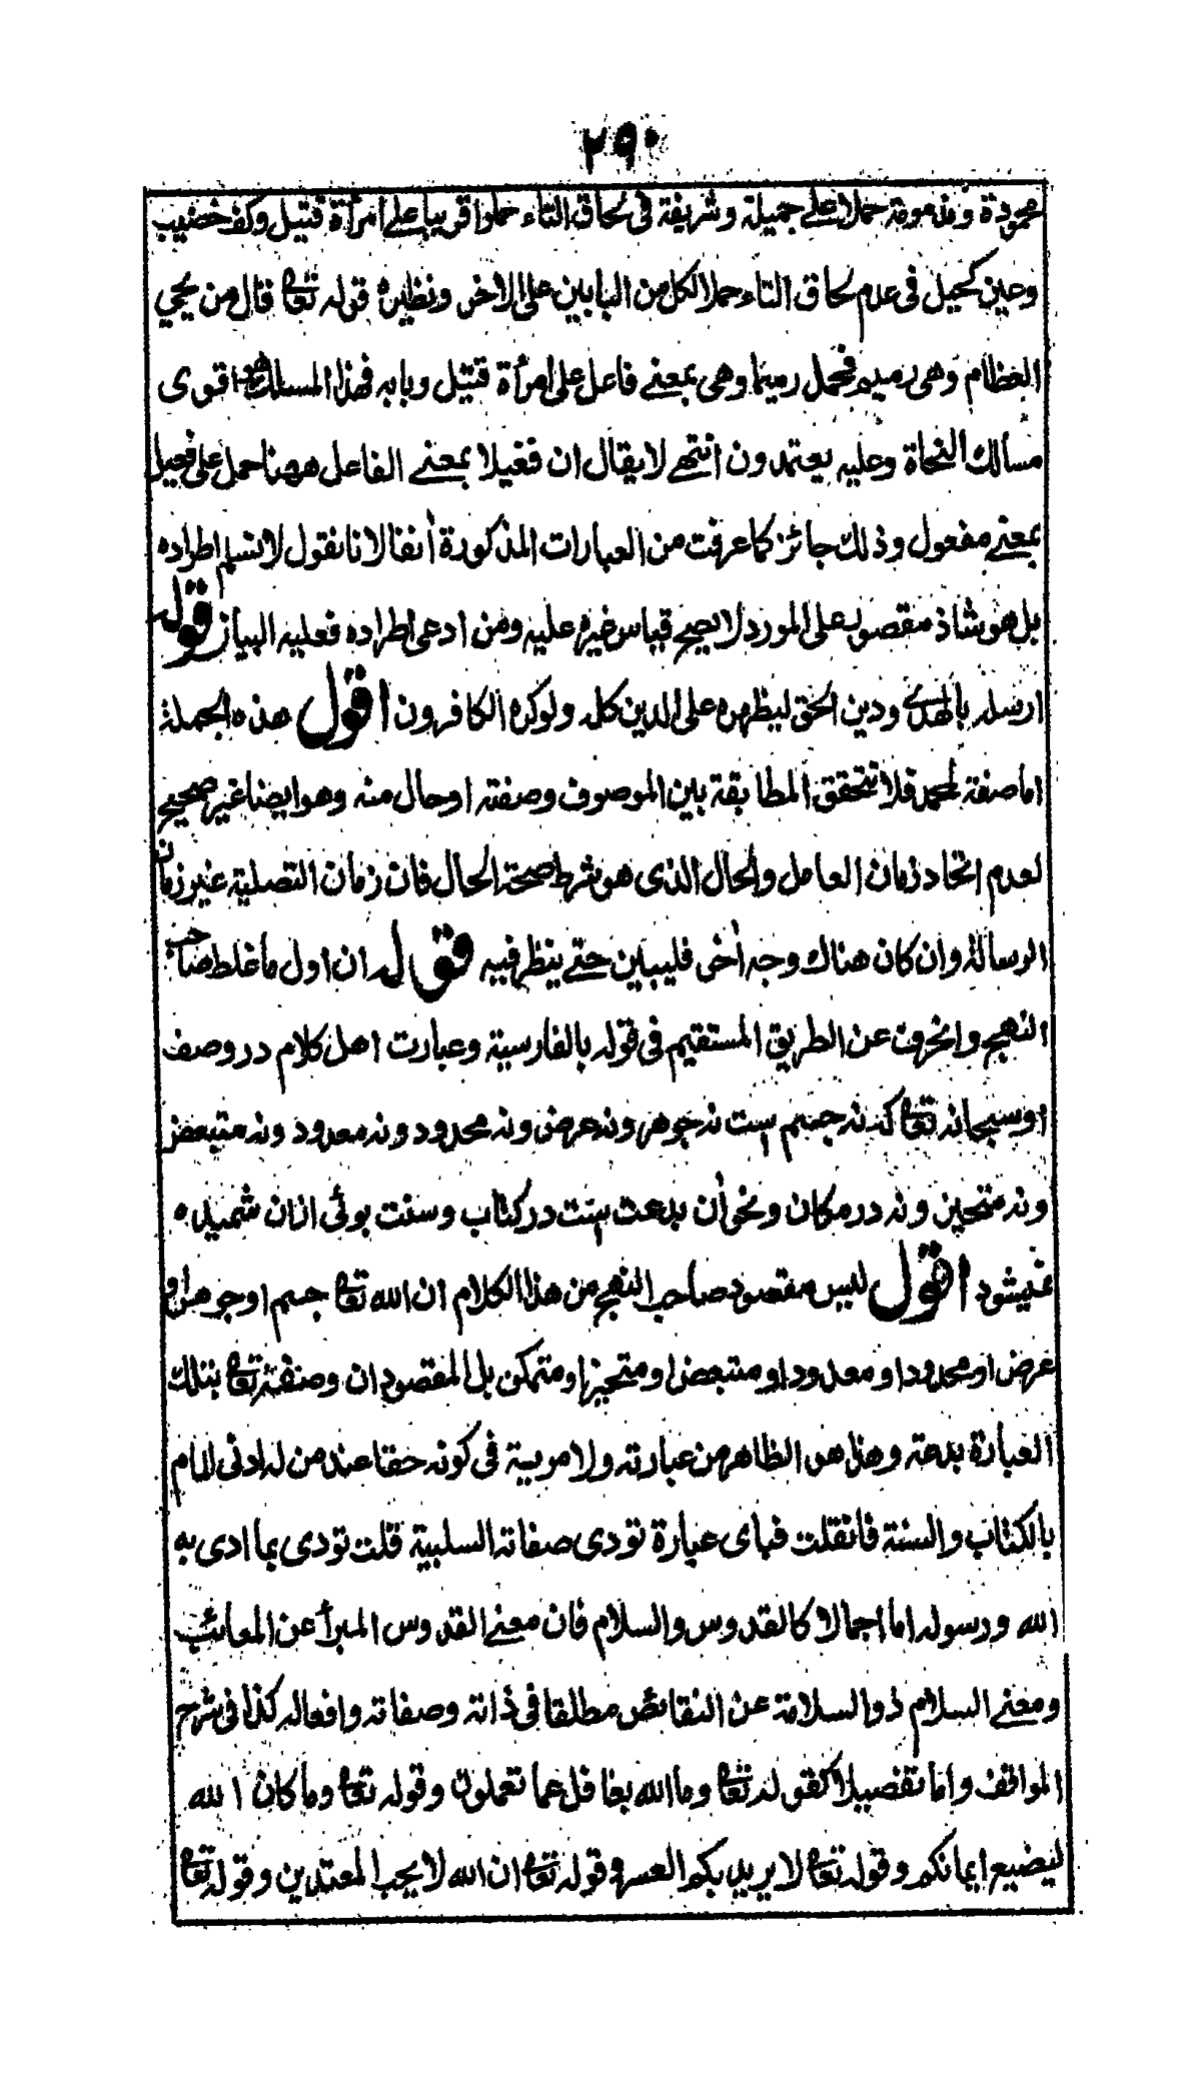 ٢٩٠
محمودة ومذمومة حملا على جميلة وشريفة فى لحاق التاء حملوا قريبا على امرأة قتيل وكف خضيب
وعين كحيل فى عدم لحاق التاء حملا لكل من البابين على الاخر ونظيره قوله تعالى قال من يحي
العظام وهى رميم فحمل رميما وهى بمعنے فاعل على امرأة قتيل وبابه فهذا المسلك هو اقوى
مسالك النحاة وعليه يعتمدون انتهے لا يقال ان فعيلا بمعنے الفاعل ههنا حمل على فعيل
بمعنے مفعول وذلك جائز كما عرفت من العبارات المذكورة أنفا لانا نقول لا نسلم اطراده
بل هو شاذ مقصور على المورد لا يصح قياس غيره عليه ومن ادعى اطراده فعليه البيان قوله
ارسله بالهدے ودين الحق ليظهره على الدين كله ولوكره الكافرون اقول هذه الجملة
اما صفة لمحمد فلا تتحقق المطابقة بين الموصوف وصفته او حال منه وهو ايضا غير صحيح
لعدم اتحاد زمان العامل والحال الذى هو شرط صحة الحال فان زمان التصلية غير زمان
الرسالة وان كان هناك وجه أخر فليبين حتے ينظر فيه قوله ان اول ما غلط صاحب
النهج وانحرف عن الطريق المستقيم فى قوله بالفارسية وعبارت اهل كلام در وصف
اوسبحانه تعالى كه نه جسم ست نه جوهر ونه عرض ونه محدود ونه معدود ونه متبعض
ونه متحيز ونه در مكان ونحو أن بدعت ست در كتاب وسنت بوئى ازان شميده
نميشود اقول ليس مقصود صاحب النهج من هذا الكلام ان الله تعالى جسم او جوهر او
عرض او محدود او معدود او متبعض او متحيز او متمكن بل المقصود ان وصفه تعالى بتلك
العبارة بدعة وهذا هو الظاهر من عبارته ولا مرية فى كونه حقا عند من له ادنى المام
بالكتاب والسنة فان قلت فباى عبارة تودى صفاته السلبية قلت تودى بما ادى به
الله ورسوله اما اجمالا كالقدوس والسلام فان معنے القدوس المبرأ عن المعائب
ومعنے السلام ذو السلامة عن النقائص مطلقا فى ذاته وصفاته وافعاله كذا فى شرح
المواقف واما تفصيلا كقوله تعالى وما الله بغافل عما تعملون وقوله تعالى وما كان الله
ليضيع ايمانكم وقوله تعالى لا يريد بكم العسر وقوله تعالى ان الله لا يحب المعتدين وقوله تعالى